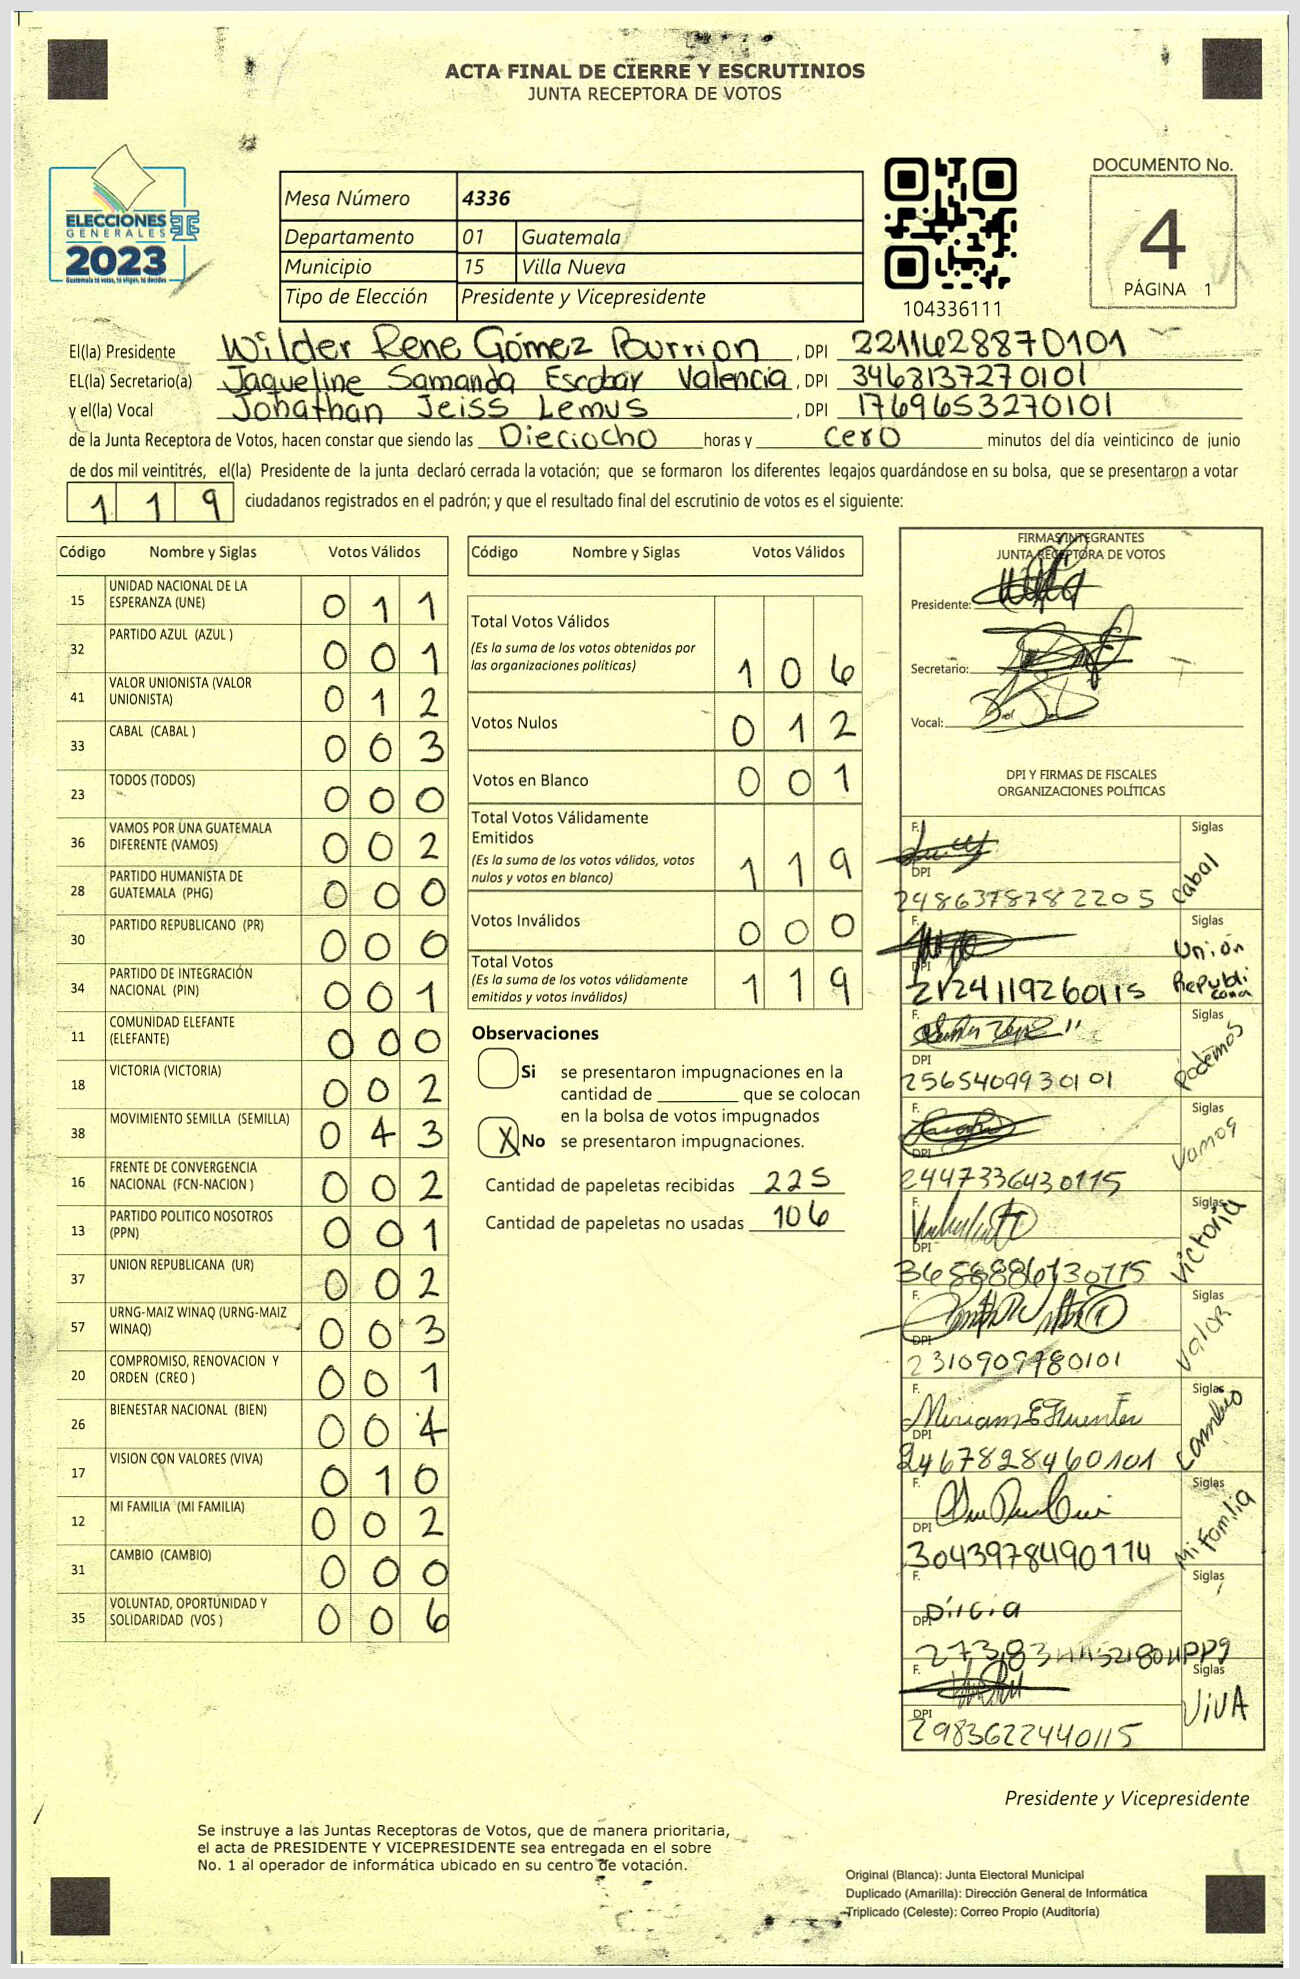 ACTA FINAL DE CIERRE Y ESCRUTINIOS
JUNTA RECEPTORA DE VOTOS
ELECCIONES
GENERALES
2023
Guatemala tú votas, tú eliges, tú decides
Mesa Número 4336
Departamento 01 Guatemala
Municipio 15 Villa Nueva
Tipo de Elección Presidente y Vicepresidente
104336111
DOCUMENTO No.
4
PÁGINA 1
El(la) Presidente Wilder Rene Gómez Bourrion, DPI 2211428870101
EL(la) Secretario(a) Jaqueline Samanda Escobar Valencia, DPI 3468137270101
y el(la) Vocal Jonathan Jeiss Lemus, DPI 1769653270101
de la Junta Receptora de Votos, hacen constar que siendo las Dieciocho horas y cero minutos del día veinticinco de junio
de dos mil veintitrés, el(la) Presidente de la junta declaró cerrada la votación; que se formaron los diferentes legajos quardándose en su bolsa, que se presentaron a votar
119 ciudadanos registrados en el padrón; y que el resultado final del escrutinio de votos es el siguiente:
Código Nombre y Siglas Votos Válidos
15 UNIDAD NACIONAL DE LA ESPERANZA (UNE) 011
32 PARTIDO AZUL (AZUL ) 001
41 VALOR UNIONISTA (VALOR UNIONISTA) 012
33 CABAL (CABAL ) 003
23 TODOS (TODOS) 000
36 VAMOS POR UNA GUATEMALA DIFERENTE (VAMOS) 002
28 PARTIDO HUMANISTA DE GUATEMALA (PHG) 000
30 PARTIDO REPUBLICANO (PR) 000
34 PARTIDO DE INTEGRACIÓN NACIONAL (PIN) 001
11 COMUNIDAD ELEFANTE (ELEFANTE) 000
18 VICTORIA (VICTORIA) 002
38 MOVIMIENTO SEMILLA (SEMILLA) 043
16 FRENTE DE CONVERGENCIA NACIONAL (FCN-NACION ) 002
13 PARTIDO POLITICO NOSOTROS (PPN) 001
37 UNION REPUBLICANA (UR) 002
57 URNG-MAIZ WINAQ (URNG-MAIZ WINAQ) 003
20 COMPROMISO, RENOVACION Y ORDEN (CREO ) 001
26 BIENESTAR NACIONAL (BIEN) 004
17 VISION CON VALORES (VIVA) 010
12 MI FAMILIA (MI FAMILIA) 002
31 CAMBIO (CAMBIO) 000
35 VOLUNTAD, OPORTUNIDAD Y SOLIDARIDAD (VOS ) 006
Código Nombre y Siglas Votos Válidos
Total Votos Válidos
(Es la suma de los votos obtenidos por
las organizaciones políticas) 106
Votos Nulos 012
Votos en Blanco 001
Total Votos Válidamente
Emitidos
(Es la suma de los votos válidos, votos
nulos y votos en blanco) 119
Votos Inválidos 000
Total Votos
(Es la suma de los votos válidamente
emitidos y votos inválidos) 119
Observaciones
Si se presentaron impugnaciones en la
cantidad de ________ que se colocan
en la bolsa de votos impugnados
X No se presentaron impugnaciones.
Cantidad de papeletas recibidas 225
Cantidad de papeletas no usadas 106
FIRMAS INTEGRANTES
JUNTA RECEPTORA DE VOTOS
Presidente:
Secretario:
Vocal:
DPI Y FIRMAS DE FISCALES
ORGANIZACIONES POLÍTICAS
F. Siglas
DPI 2486378782205 Cabal
F. Siglas
DPI 2124119260115 Unión Republicana
F. Siglas
DPI 2565409930101 Podemos
F. Siglas
DPI 2447336430115 Vamos
F. Siglas
DPI 3658886130115 Victoria
F. Siglas
DPI 2310909780101 Valor
F. Miriam E Fuentes Siglas
DPI 2467828460101 Cambio
F. Siglas
DPI 3043978490114 Mi Familia
F. Dircia Siglas
DPI
F. Siglas
DPI 2983622440115 ViVA
Presidente y Vicepresidente
Se instruye a las Juntas Receptoras de Votos, que de manera prioritaria,
el acta de PRESIDENTE Y VICEPRESIDENTE sea entregada en el sobre
No. 1 al operador de informática ubicado en su centro de votación.
Original (Blanca): Junta Electoral Municipal
Duplicado (Amarilla): Dirección General de Informática
Triplicado (Celeste): Correo Propio (Auditoría)